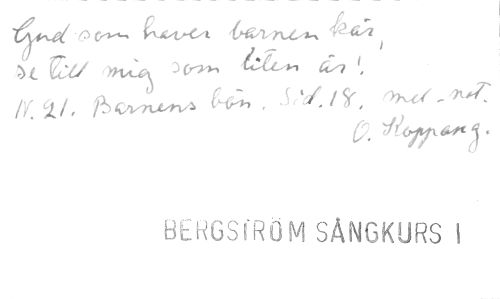 Gud som haver barnen kär,
se till mig som liten är!
N. 21. Barnens bön. Sid. 18. mel.-not.
O. Koppang.
BERGSTRÖM SÅNGKURS I